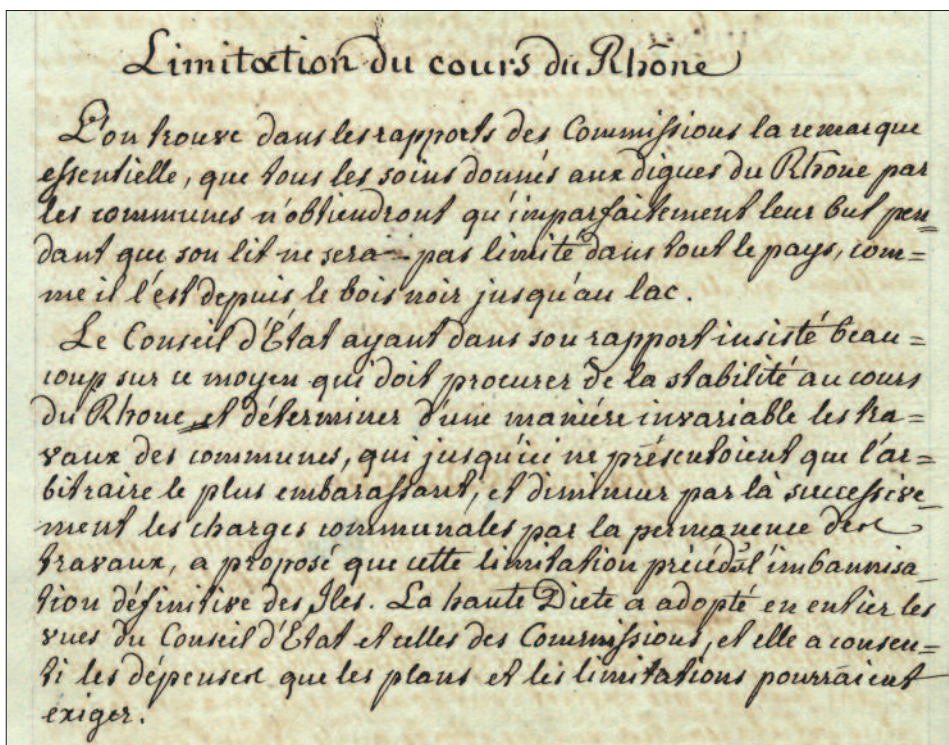 Limitation du cours du Rhône
L'on trouve dans les rapports des Commissions la remarque
essentielle, que tous les soins donnés aux digues du Rhône par
les communes n'obtiendront qu'imparfaitement leur but pen=
dant que son lit ne sera pas limité dans tout le pays, com=
me il l'est depuis le bois noir jusqu'au lac.
Le Conseil d'Etat ayant dans son rapport insisté beau=
coup sur ce moyen qui doit procurer de la stabilité au cours
du Rhone, et déterminer d'une maniére invariable les tra=
vaux des communes, qui jusqu'ici ne présentoient que l'ar=
bitraire le plus embarassant, et diminuer par là successive
ment les charges communales par la permanence des
travaux, a proposé que cette limitation précédat l'imbannisa=
tion définitive des Iles. La haute Diete a adopté en entier les
vues du Conseil d'Etat et celles des Commissions, et elle a consen=
ti les dépenses que les plans et les limitations pourraient
éxiger.